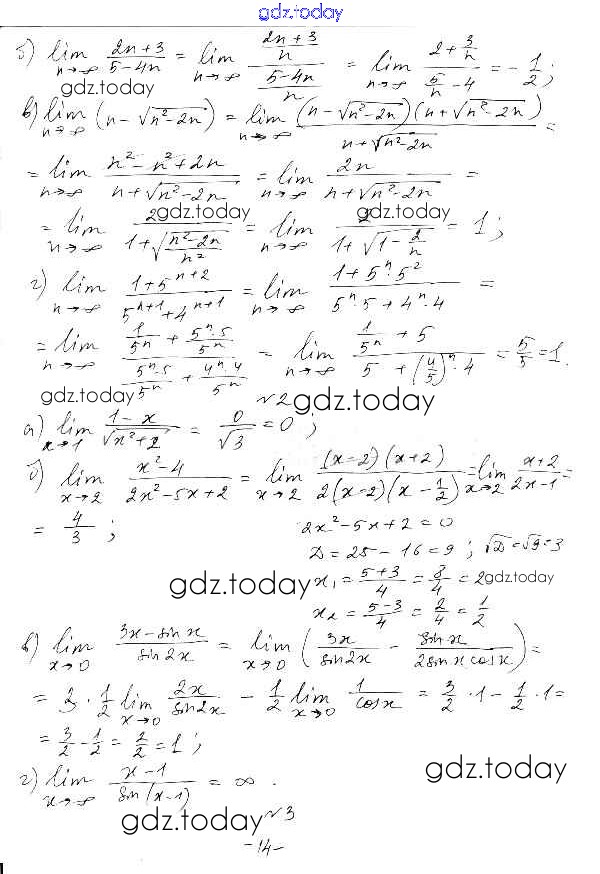 gdz.today
б) lim n→∞ (2n+3)/(5-4n) = lim n→∞ ((2n+3)/n)/((5-4n)/n) = lim n→∞ (2+3/n)/(5/n-4) = -1/2;
gdz.today
в) lim n→∞ (n-√(n²-2n)) = lim n→∞ ((n-√(n²-2n))(n+√(n²-2n)))/(n+√(n²-2n)) =
= lim n→∞ (n²-n²+2n)/(n+√(n²-2n)) = lim n→∞ 2n/(n+√(n²-2n)) =
gdz.today gdz.today
= lim n→∞ 2/(1+√((n²-2n)/n²)) = lim n→∞ 2/(1+√(1-2/n)) = 1;
г) lim n→∞ (1+5^(n+2))/(5^(n+1)+4^(n+1)) = lim n→∞ (1+5^n·5²)/(5^n·5+4^n·4) =
gdz.today gdz.today
= lim n→∞ (1/5^n+(5^n·5)/5^n)/((5^n·5)/5^n+(4^n·4)/5^n) = lim n→∞ (1/5^n+5)/(5+(4/5)^n·4) = 5/5 = 1.
gdz.today gdz.today
№2
а) lim x→1 (1-x)/√(x²+2) = 0/√3 = 0;
б) lim x→2 (x²-4)/(2x²-5x+2) = lim x→2 ((x-2)(x+2))/(2(x-2)(x-1/2)) = lim x→2 (x+2)/(2x-1) =
= 4/3; 2x²-5x+2=0
D = 25-16=9; √D=√9=3
gdz.today x₁ = (5+3)/4 = 8/4 = 2 gdz.today
x₂ = (5-3)/4 = 2/4 = 1/2
в) lim x→0 (3x-sin x)/(sin 2x) = lim x→0 (3x/(sin 2x) - sin x/(2 sin x cos x)) =
= 3·1/2 lim x→0 2x/(sin 2x) - 1/2 lim x→0 1/(cos x) = 3/2·1-1/2·1=
= 3/2-1/2 = 2/2 = 1;
gdz.today
г) lim x→∞ (x-1)/(sin(x-1)) = ∞.
gdz.today №3
-14-